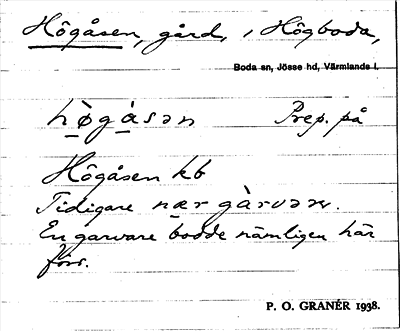 Högåsen, gård, i Högboda,
Boda sn, Jösse hd, Värmlands l.
hø̀gåsən Prep. på
Högåsen kb
Tidigare nær gàrvərə.
En garvare bodde nämligen här
förr.
P. O. GRANÉR 1938.